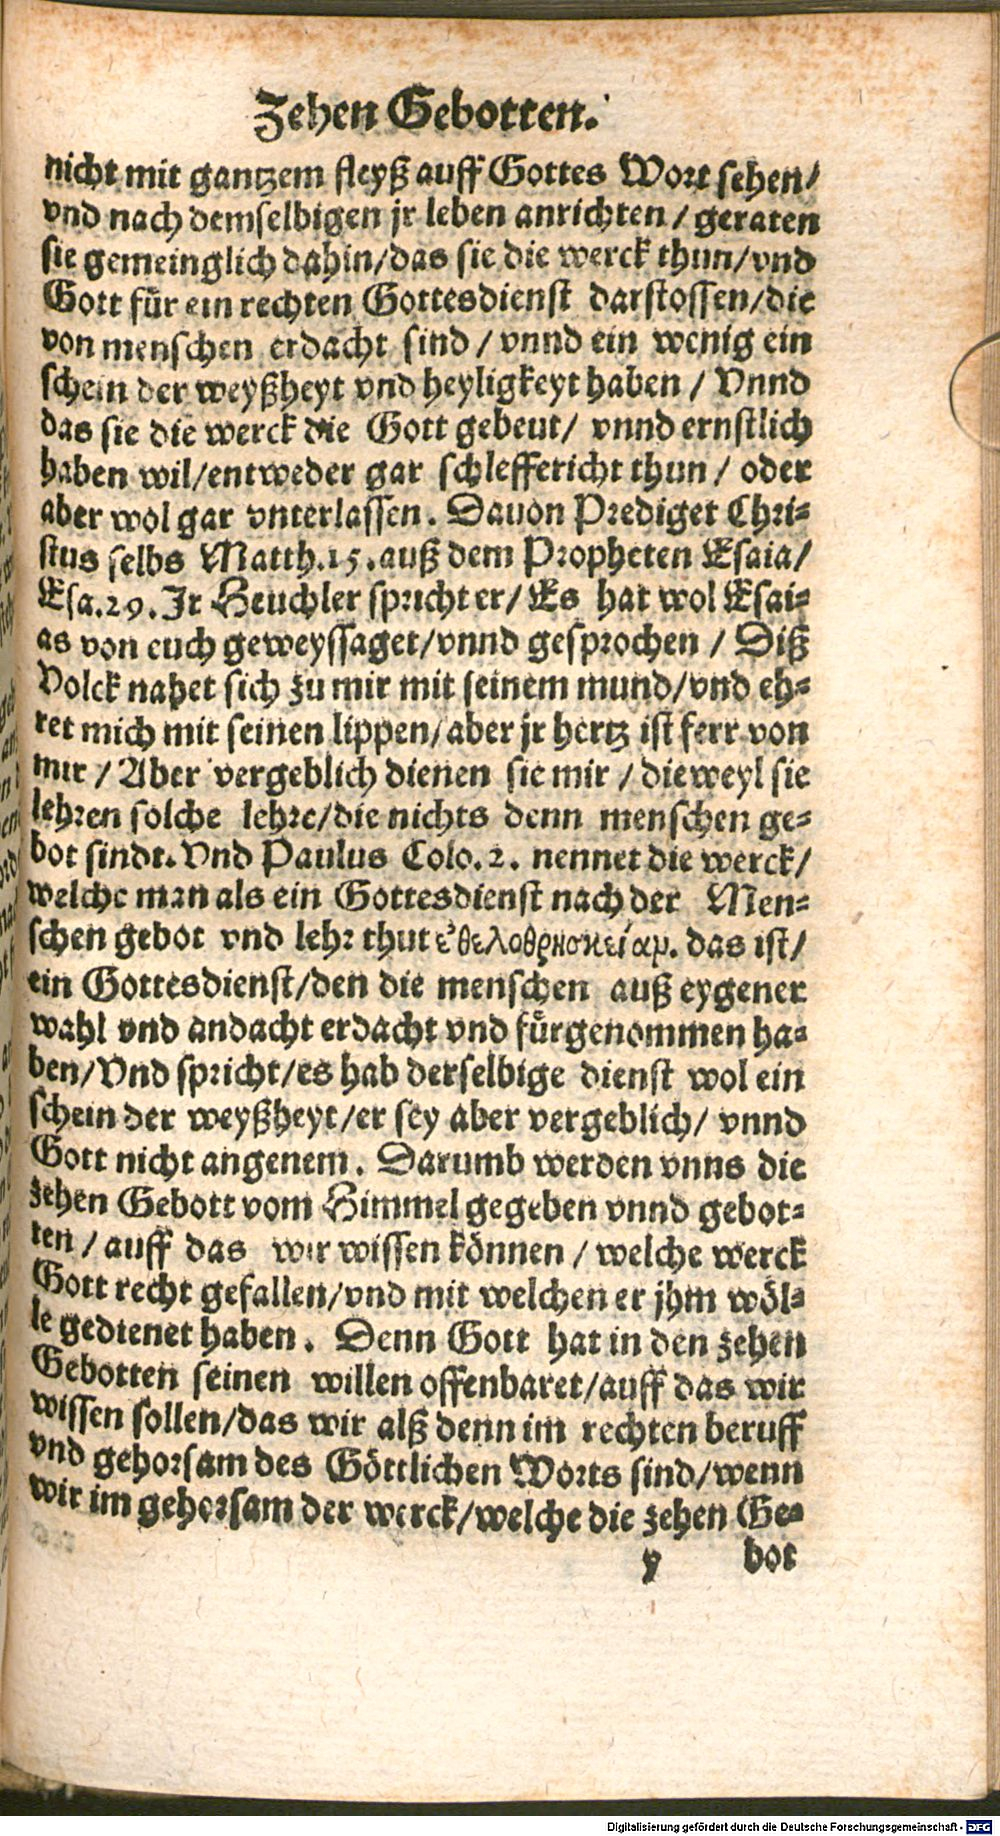 Zehen Gebotten.
nicht mit gantzem fleyß auff Gottes Wort sehen/
vnd nach demselbigen jr leben anrichten / geraten
sie gemeinglich dahin/das sie die werck thun/vnd
Gott für ein rechten Gottesdienst darstossen/die
von menschen erdacht sind / vnnd ein wenig ein
schein der weyßheyt vnd heyligkeyt haben / Vnnd
das sie die werck die Gott gebeut/ vnnd ernstlich
haben wil/entweder gar schleffericht thun / oder
aber wol gar vnterlassen. Dauon Prediget Chri-
stus selbs Matth.15.auß dem Propheten Esaia/
Esa.29. Jr Heuchler spricht er/ Es hat wol Esai-
as von euch geweyssaget/vnnd gesprochen / Diß
Volck nahet sich zu mir mit seinem mund/vnd eh-
ret mich mit seinen lippen/aber jr hertz ist ferr von
mir / Aber vergeblich dienen sie mir / dieweyl sie
lehren solche lehre/die nichts denn menschen ge-
bot sindt. Vnd Paulus Colo.2. nennet die werck/
welche man als ein Gottesdienst nach der Men-
schen gebot vnd lehr thut ἐθελοθρησκείαμ. das ist/
ein Gottesdienst/den die menschen auß eygener
wahl vnd andacht erdacht vnd fürgenommen ha-
ben/Vnd spricht/es hab derselbige dienst wol ein
schein der weyßheyt/er sey aber vergeblich/ vnnd
Gott nicht angenem. Darumb werden vnns die
zehen Gebott vom Himmel gegeben vnnd gebot-
ten / auff das wir wissen können / welche werck
Gott recht gefallen/vnd mit welchen er jhm wöl-
le gedienet haben. Denn Gott hat in den zehen
Gebotten seinen willen offenbaret/auff das wir
wissen sollen/das wir alß denn im rechten beruff
vnd gehorsam des Göttlichen Worts sind/wenn
wir im gehorsam der werck/welche die zehen Ge-
y bot
Digitalisierung gefördert durch die Deutsche Forschungsgemeinschaft - DFG